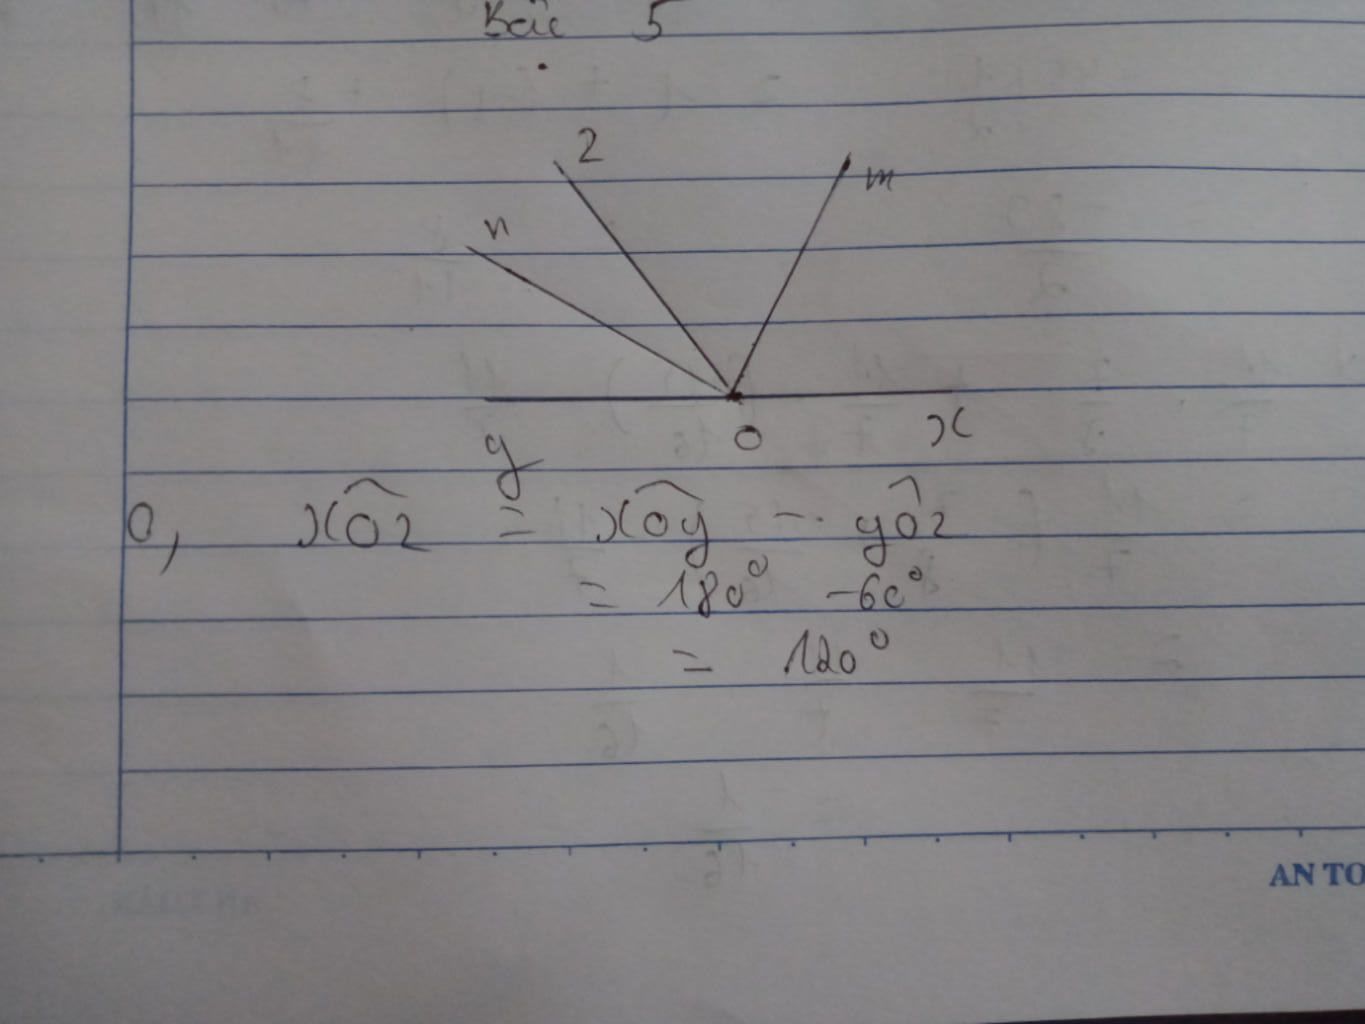 Bài 5
z
m
n
O
x
y
a, xOz = xOy - yOz
= 180° - 60°
= 120°
AN TO